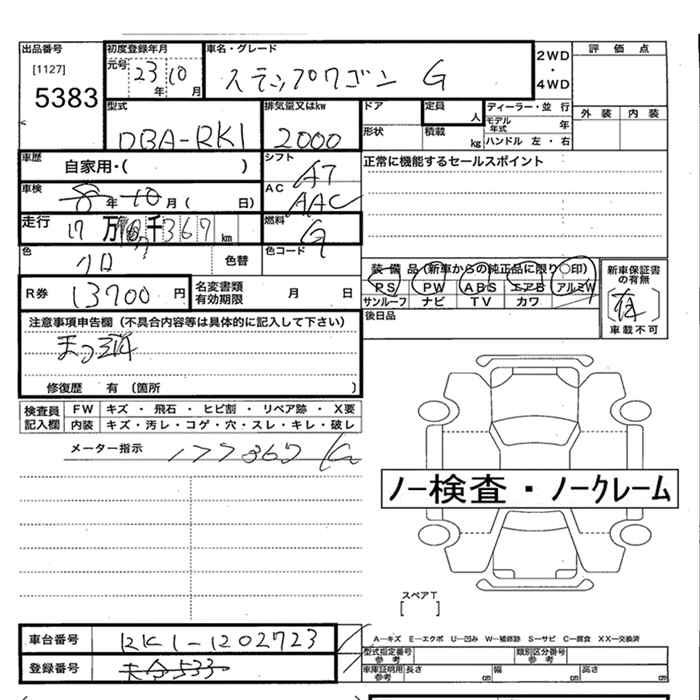 出品番号
[1127]
5383
初度登録年月
元号 23 年 10 月
車名・グレード
ステップワゴン G
2WD
・
4WD
評価点
外装 内装
型式
DBA-RK1
排気量又はkw
2000
ドア
形状
定員 人
積載 kg
ディーラー・並行
モデル年式 年
ハンドル 左・右
車歴 自家用・( )
シフト AT
正常に機能するセールスポイント
車検 年 10 月 ( 日)
AC AAC
走行 17 万 千 367 km
燃料 G
色 クロ 色替
色コード
装備品(新車からの純正品に限り○印)
PS PW ABS エアB アルミW
サンルーフ ナビ TV カワ
後日品
新車保証書の有無
車載不可
R券 13700 円
名変書類有効期限 月 日
注意事項申告欄(不具合内容等は具体的に記入して下さい)
修復歴 有 (箇所 )
検査員記入欄
FW キズ・飛石・ヒビ割・リペア跡・X要
内装 キズ・汚レ・コゲ・穴・スレ・キレ・破レ
メーター指示 177367 K
ノー検査・ノークレーム
スペアT
[ ]
車台番号 RK1-1202723
登録番号
A―キズ E―エクボ U―凹み W―補修跡 S―サビ C―腐食 XX―交換済
型式指定番号 参考
類別区分番号 参考
車庫証明用 参考 長さ cm 幅 cm 高さ cm